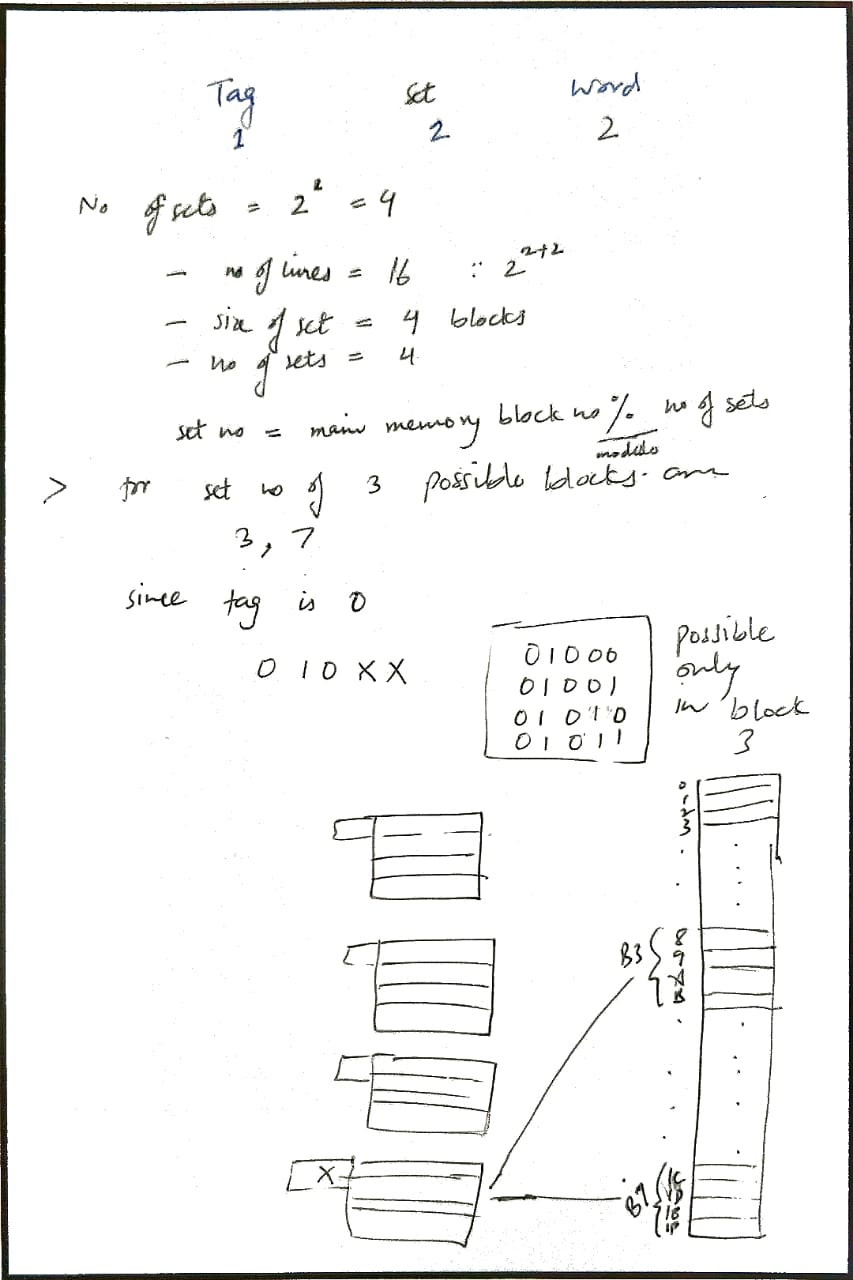 Tag Set Word
1 2 2
No of sets = 2² = 4
- no of lines = 16 : 2²⁺²
- size of set = 4 blocks
- no of sets = 4
set no = main memory block no % no of sets
modulo
> for set no of 3 possible blocks are
3, 7
since tag is 0
0 10 XX
01000
01001
01010
01011
possible
only
in block
3
0
1
2
3
B3
8
9
A
B
X
B7
1C
1D
1E
1F